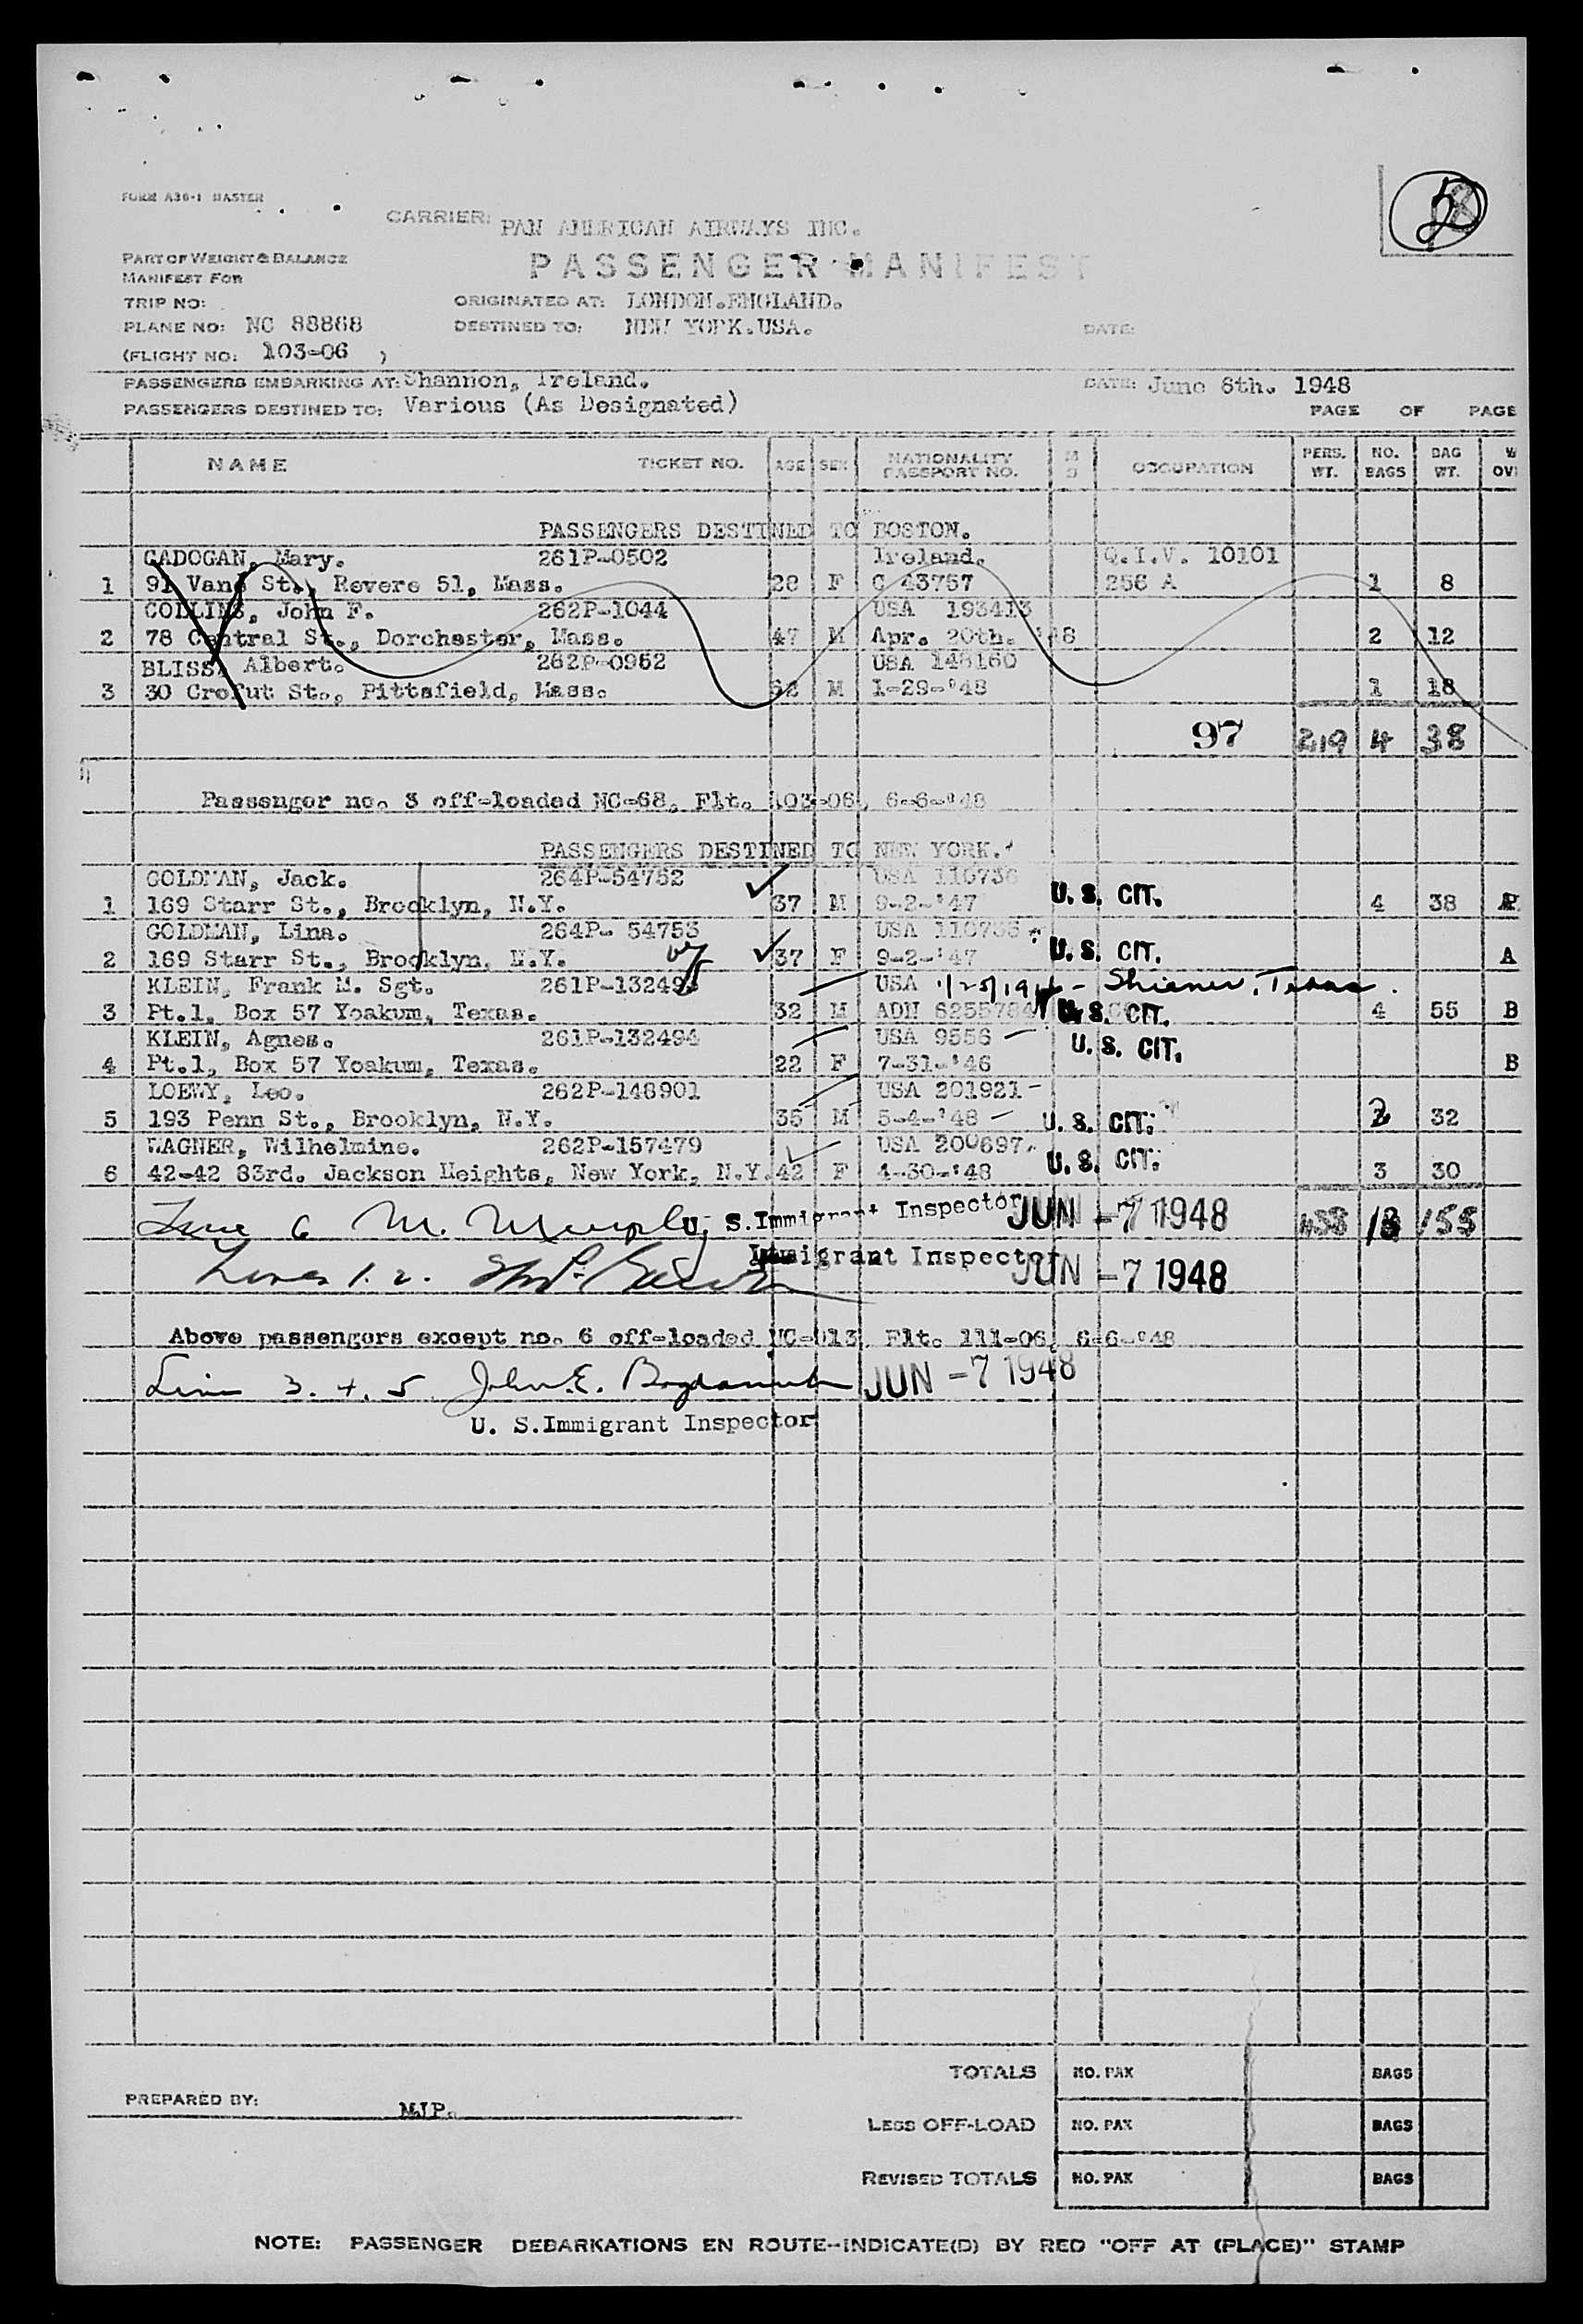 FORM A36-1 MASTER
CARRIER: PAN AMERICAN AIRWAYS INC.
PASSENGER MANIFEST
PART OF WEIGHT & BALANCE
MANIFEST FOR
TRIP NO:
ORIGINATED AT: LONDON.ENGLAND.
PLANE NO: NC 88868
DESTINED TO: NEW YORK.USA.
DATE:
(FLIGHT NO: 103-06 )
PASSENGERS EMBARKING AT: Shannon, Ireland.
DATE: June 6th. 1948
PASSENGERS DESTINED TO: Various (As Designated)
PAGE OF PAGE
NAME TICKET NO. AGE SEX NATIONALITY PASSPORT NO. M S OCCUPATION PERS. WT. NO. BAGS BAG WT.
PASSENGERS DESTINED TO BOSTON.
CADOGAN, Mary. 261P-0502 Ireland. Q.I.V. 10101
1 91 Vane St., Revere 51, Mass. 28 F C 43757 256 A 1 8
COLLINS, John F. 262P-1044 USA 193413
2 78 Central St., Dorchester, Mass. 47 M Apr. 20th. '48 2 12
BLISS, Albert. 262P-0952 USA 148160
3 30 Crofut St., Pittsfield, Mass. M 1-29-'48 1 18
97 219 4 38
Passenger no. 3 off-loaded NC-68, Flt. 103-06, 6-6-'48
PASSENGERS DESTINED TO NEW YORK.
GOLDMAN, Jack. 264P-54752 USA 110736
1 169 Starr St., Brooklyn, N.Y. 37 M 9-2-'47 U.S. CIT. 4 38
GOLDMAN, Lina. 264P- 54753 USA 110735
2 169 Starr St., Brooklyn, N.Y. 37 F 9-2-'47 U.S. CIT. A
KLEIN, Frank M. Sgt. 261P-132493 USA - Shiener, Texas.
3 Pt.1, Box 57 Yoakum, Texas. 32 M ADN 6255784 U.S. CIT. 4 55 B
KLEIN, Agnes. 261P-132494 USA 9556 U.S. CIT.
4 Pt.1, Box 57 Yoakum, Texas. 22 F 7-31-'46 B
LOEWY, Leo. 262P-148901 USA 201921
5 193 Penn St., Brooklyn, N.Y. 35 M 5-4-'48 U.S. CIT. 2 32
WAGNER, Wilhelmine. 262P-157479 USA 200697
6 42-42 83rd. Jackson Heights, New York, N.Y. 42 F 4-30-'48 U.S. CIT. 3 30
Line 6 M. Murphy U. S.Immigrant Inspector JUN -7 1948 13 155
Lines 1. 2. Immigrant Inspector JUN -7 1948
Above passengers except no. 6 off-loaded NC-913, Flt. 111-06, 6-6-'48
Line 3. 4. 5 John E. JUN -7 1948
U. S.Immigrant Inspector
TOTALS NO. PAX BAGS
PREPARED BY: MJP.
LESS OFF-LOAD NO. PAX BAGS
REVISED TOTALS NO. PAX BAGS
NOTE: PASSENGER DEBARKATIONS EN ROUTE--INDICATE(D) BY RED "OFF AT (PLACE)" STAMP